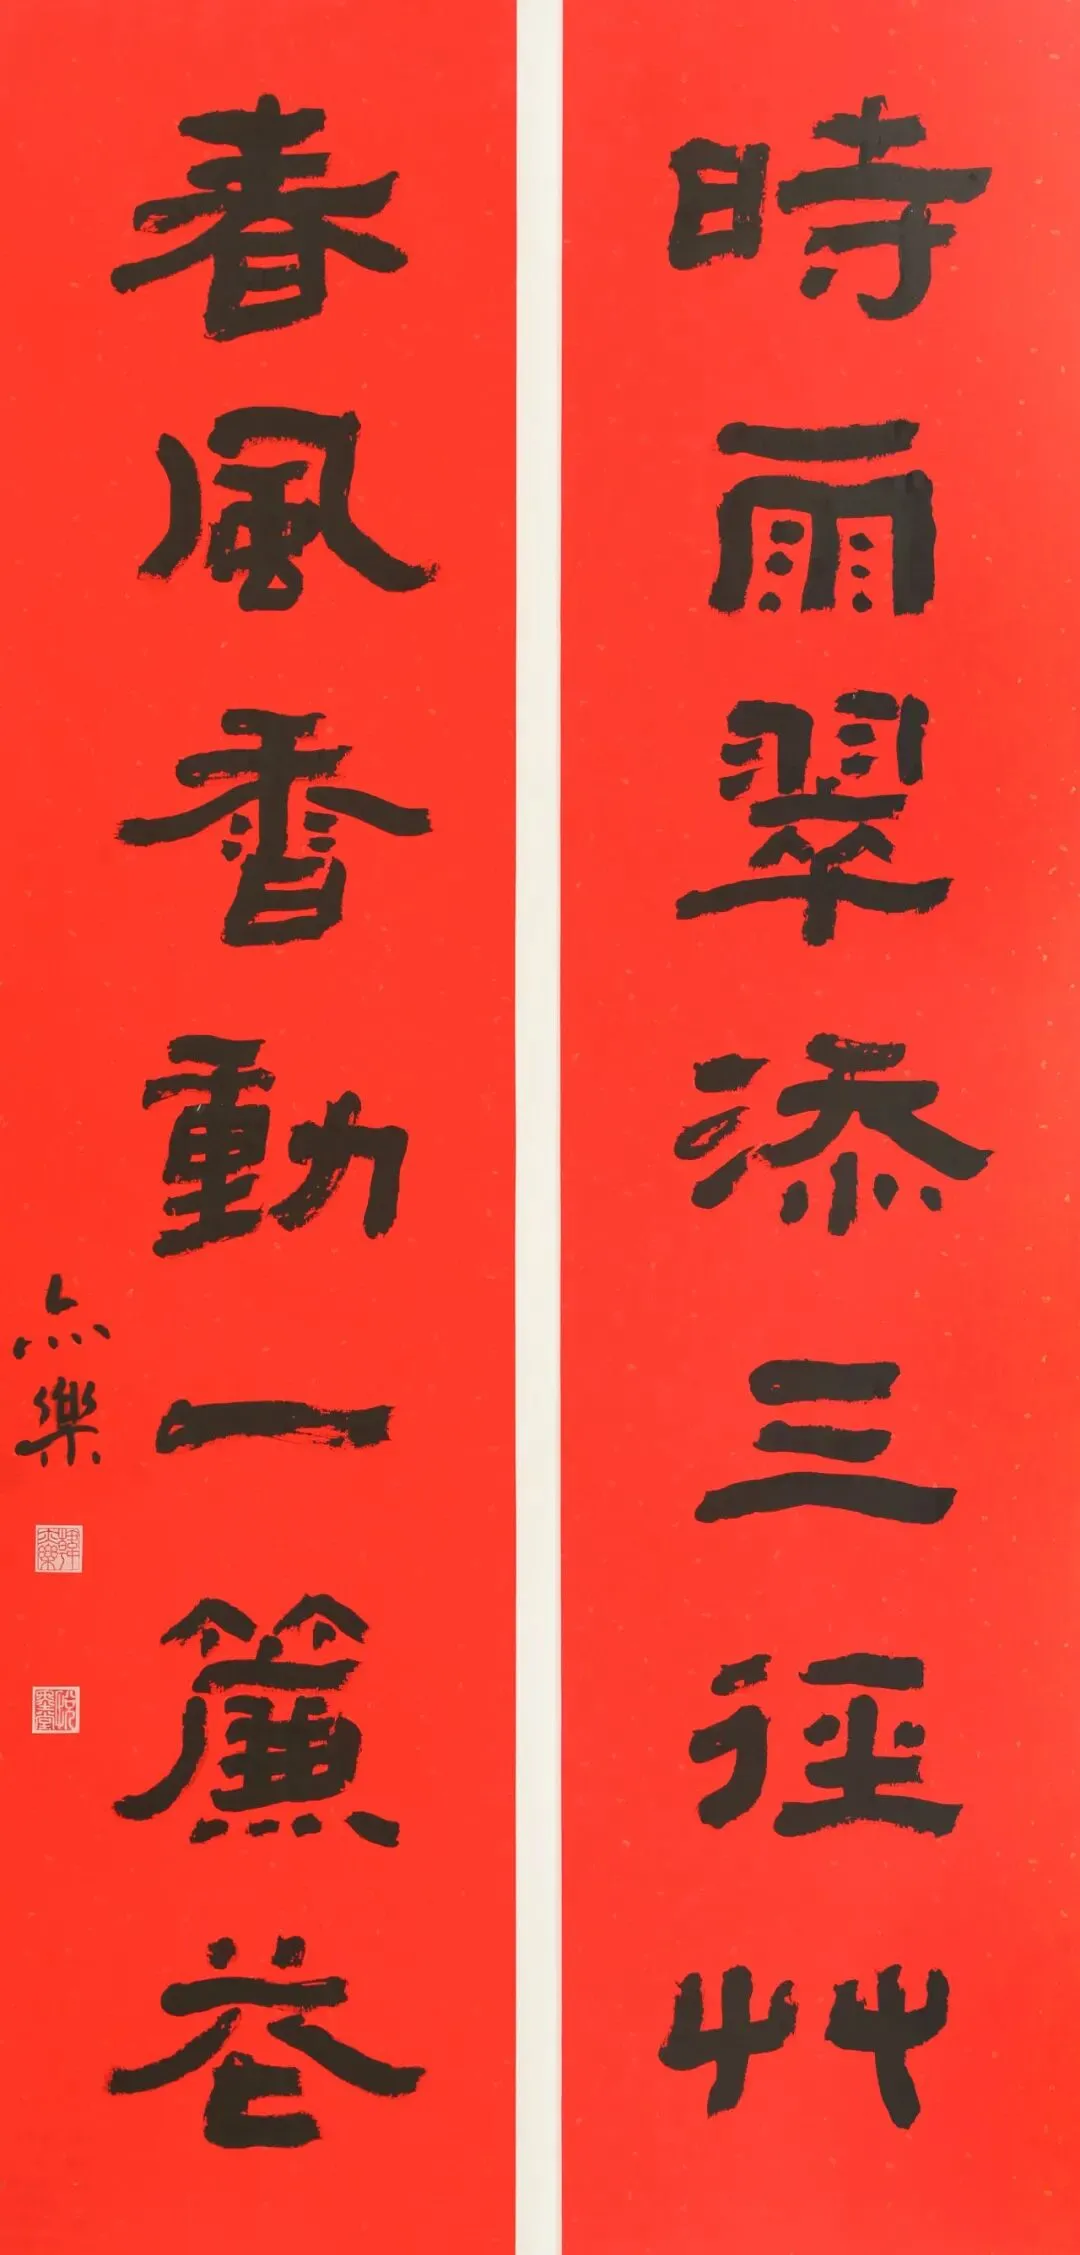 時雨翠添三徑艸
春風香動一簾花
亦樂